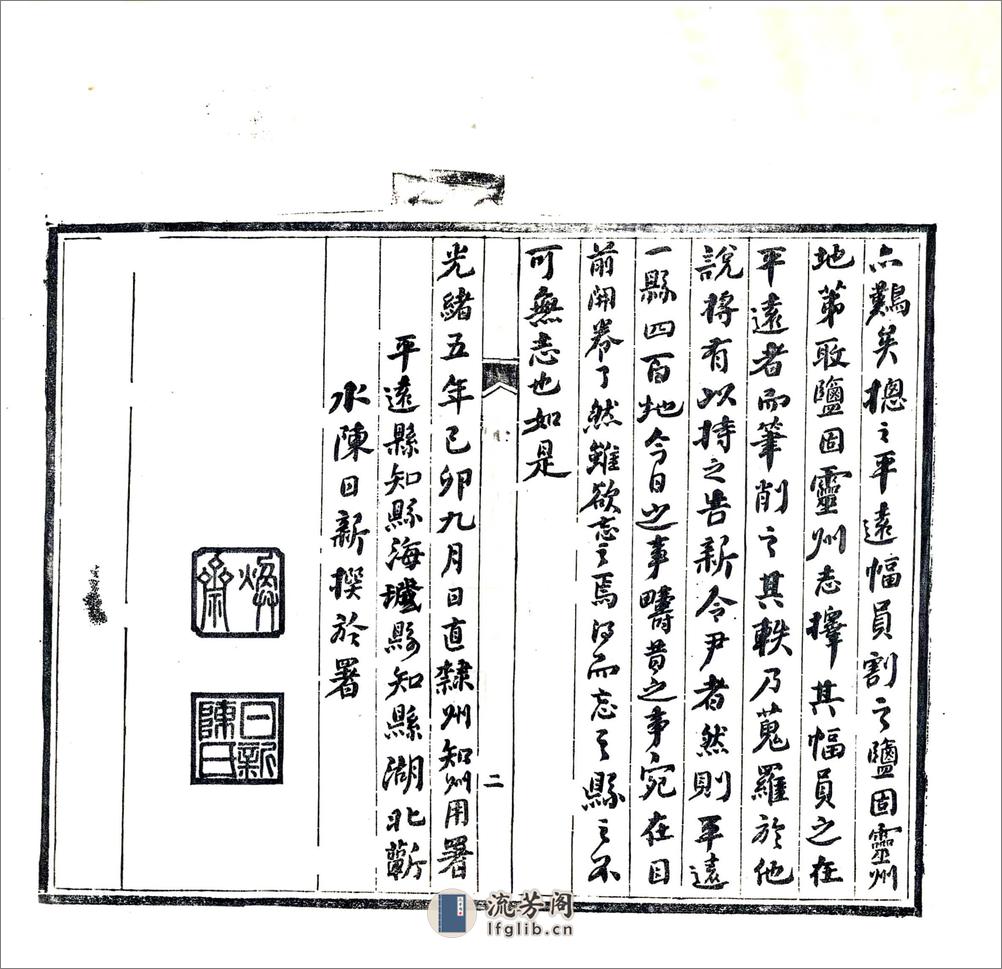 亦難矣摠之平遠幅員割之鹽固靈州
地第取鹽固靈州志擇其幅員之在
平遠者而筆削之其軼乃蒐羅於他
說將有以持之告新令尹者然則平遠
一縣四百地今日之事疇昔之事宛在目
前開卷了然雖欲忘之焉得而忘之縣之不
可無志也如是
二
光緒五年己卯九月日直隸州知州用署
平遠縣知縣海城縣知縣湖北蘄
水陳日新撰於署
煥齋
日新陳印
流芳阁
lfglib.cn